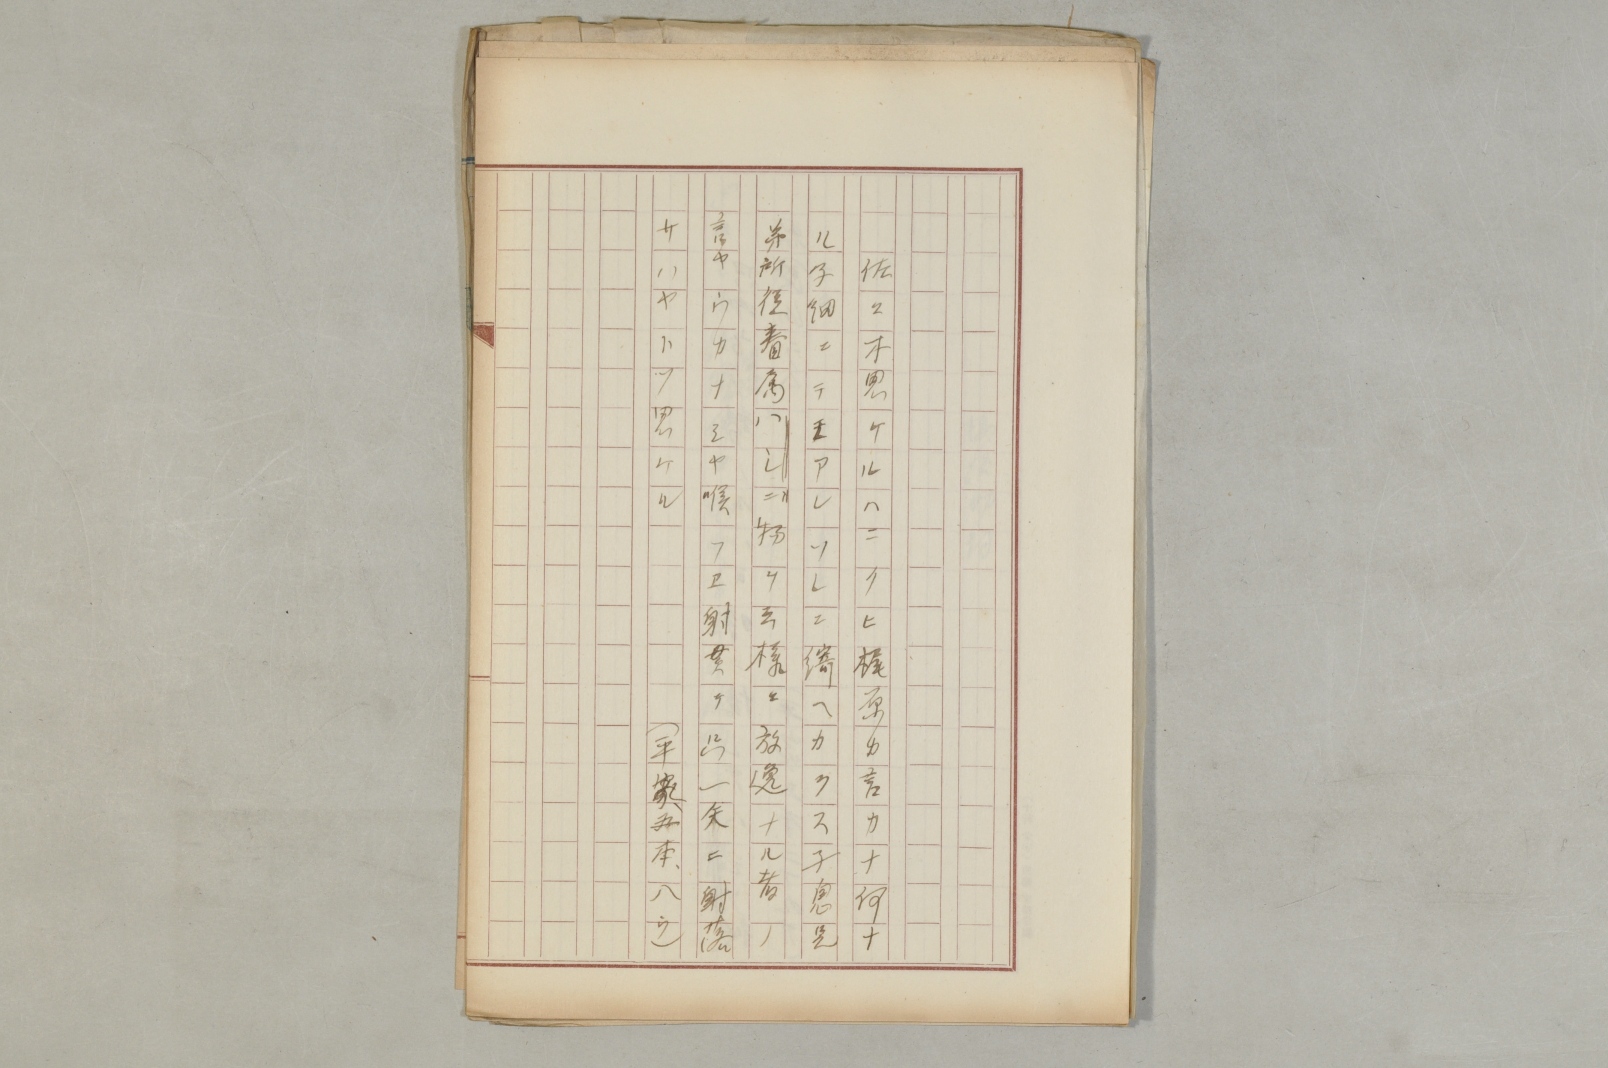 佐々木思ケルハニクヒ梶原カ言カナ何ナ
ル子細ニテモアレソレニ綺ヘカラス子息兄
弟所従眷属ハシニ物ヲ云様ニ放逸ナル者ノ
言ヤウカナミヤ喉フエ射貫ケ只一矢ニ射落
サハヤトソ思ケル　（平家、五本、八ウ）